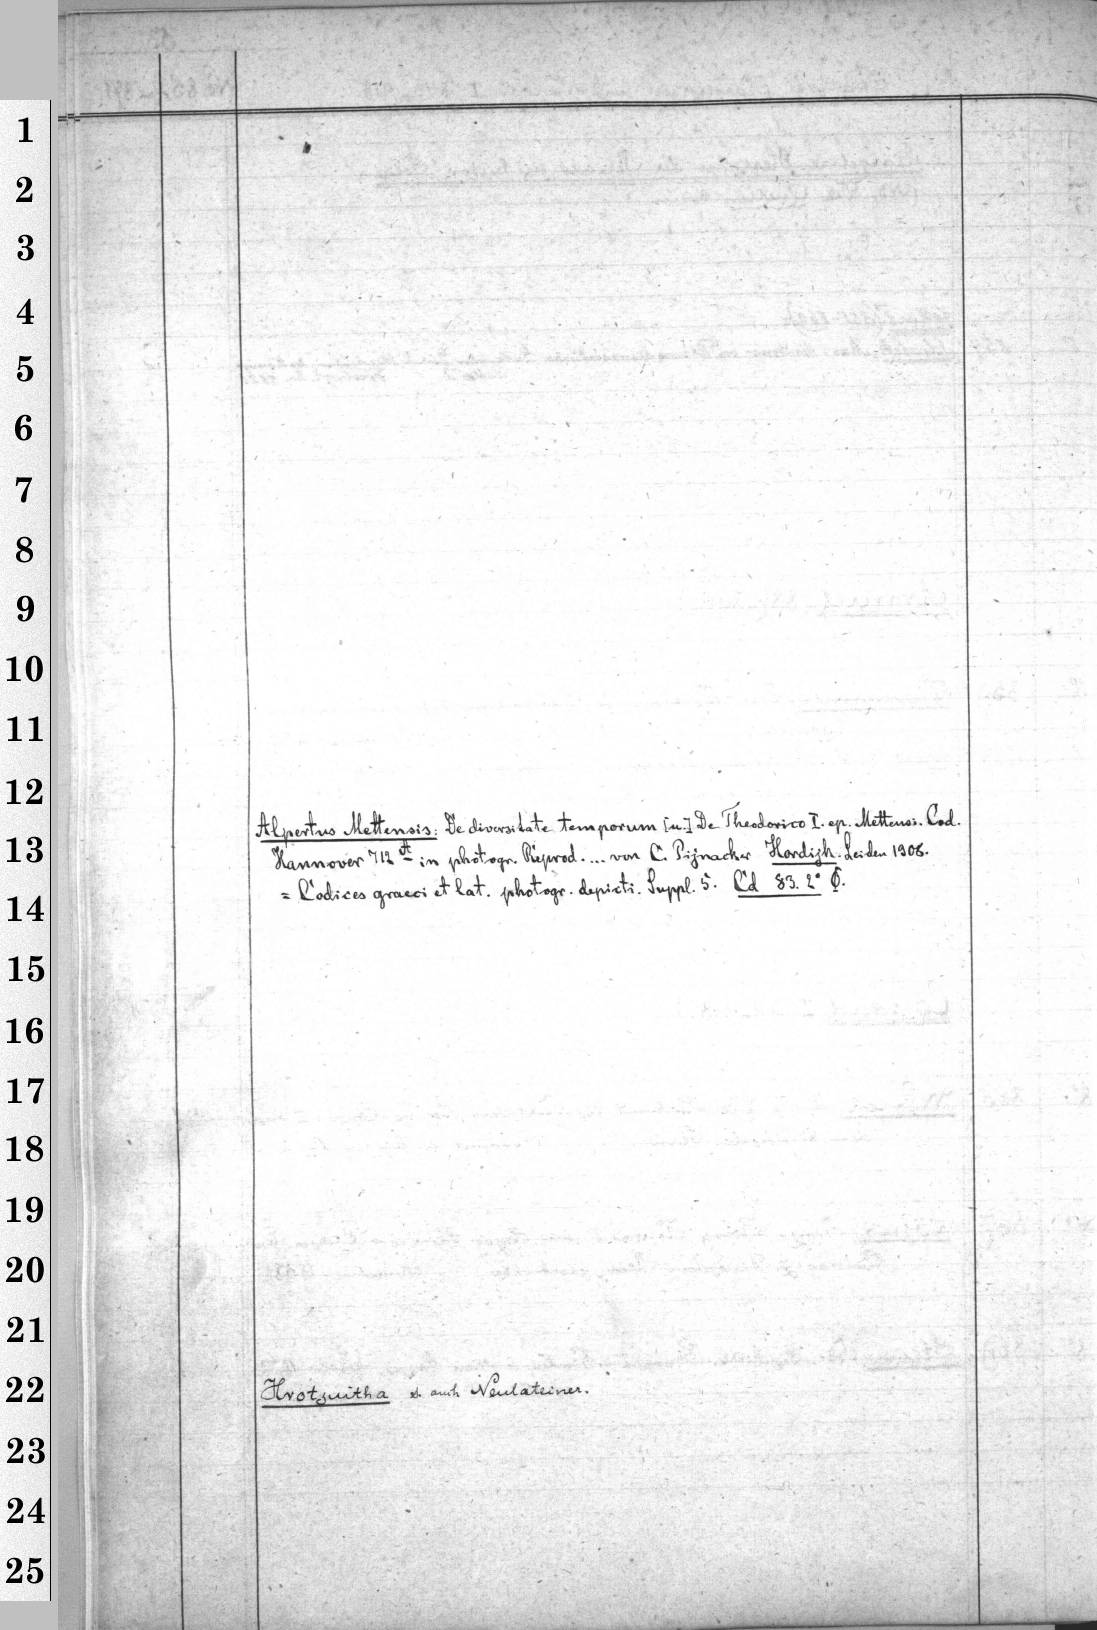 1
2
3
4
5
6
7
8
9
10
11
12
Alpertus Mettensis: De diversitate temporum [u.] De Theodorico I. ep. Mettensi. Cod.
13
Hannover 712 in photogr. Reprod. ... von C. Pijnacker Hordijk. Leiden 1908.
= Codices graeci et lat. photogr. depicti. Suppl. 5. Cd 83. 2°
14
15
16
17
18
19
20
21
22
Hrotsuitha s. auch Neulateiner.
23
24
25